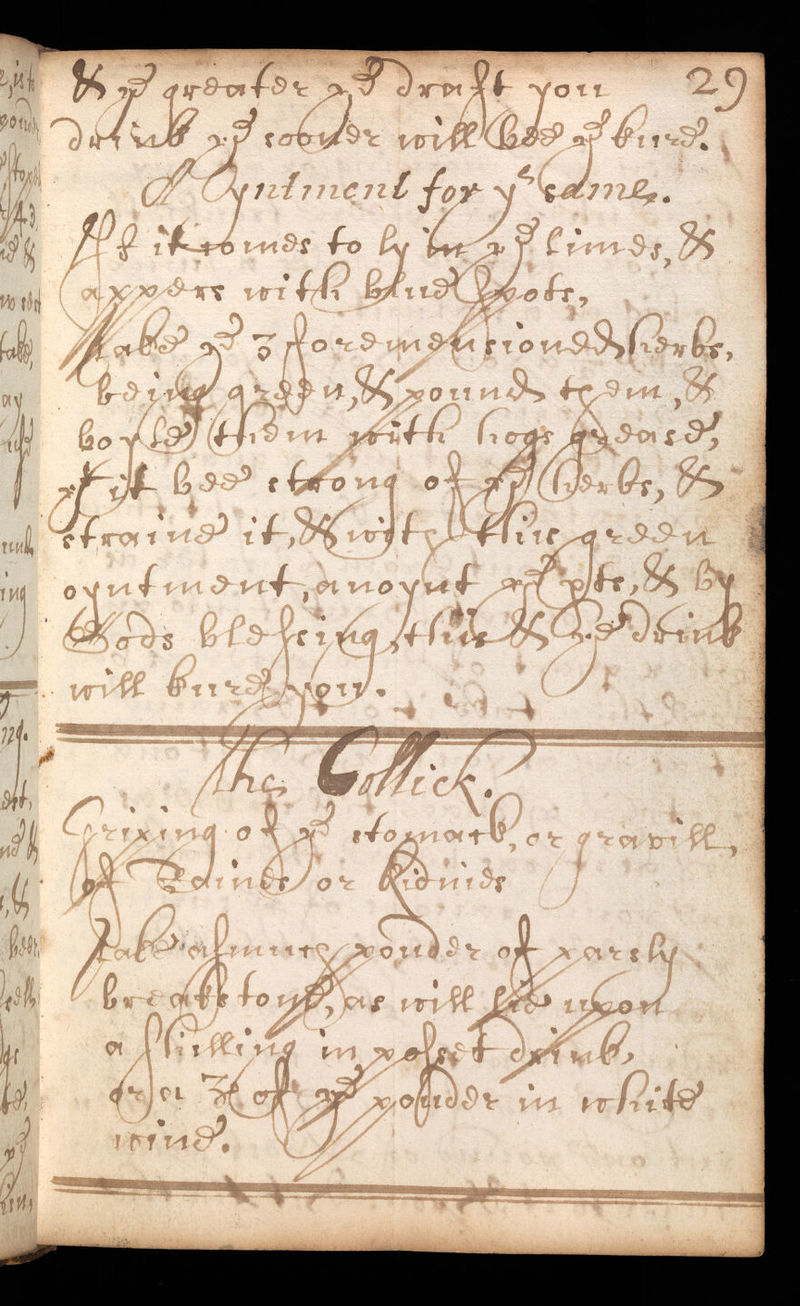 & ye greater ye draft you 29
drink ye sooner will bee ye kure.
A Oyntment for ye same.
If it comes to ly in ye limes, &
appers with blue spots,
take ye 3 forementioned herbs,
being green, & pound them, &
boyle them with hogs grease,
yt it bee strong of ye herbs, &
straine it, & with this green
oyntment, anoynt ye pts, & by
Gods blessing, this & ye drink
will kure you.
The Collick.
Griping of ye stomack, or gravill,
of Raines or kidnies
take asmuch pouder of parsly
breakstone, as will lie upon
a shilling in posset drink,
or a ʒ of ye pouder in white
wine.